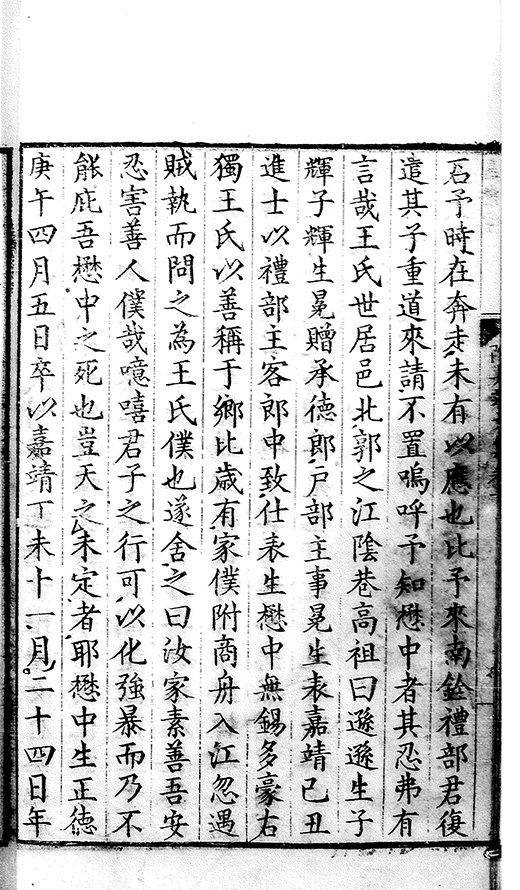 石予時在奔走未有以應也比予來南銓禮部君復
遣其子重道來請不置嗚呼予知懋中者其忍弗有
言哉王氏世居邑北郭之江陰巷高祖曰遜遜生子
輝子輝生冕贈承德郎戶部主事冕生表嘉靖己丑
進士以禮部主客郎中致仕表生懋中無錫多豪右
獨王氏以善稱于鄉比歲有家僕附商舟入江忽遇
賊執而問之為王氏僕也遂舍之曰汝家素善吾安
忍害善人僕哉噫嘻君子之行可以化強暴而乃不
能庇吾懋中之死也豈天之未定者耶懋中生正德
庚午四月五日卒以嘉靖丁未十一月二十四日年